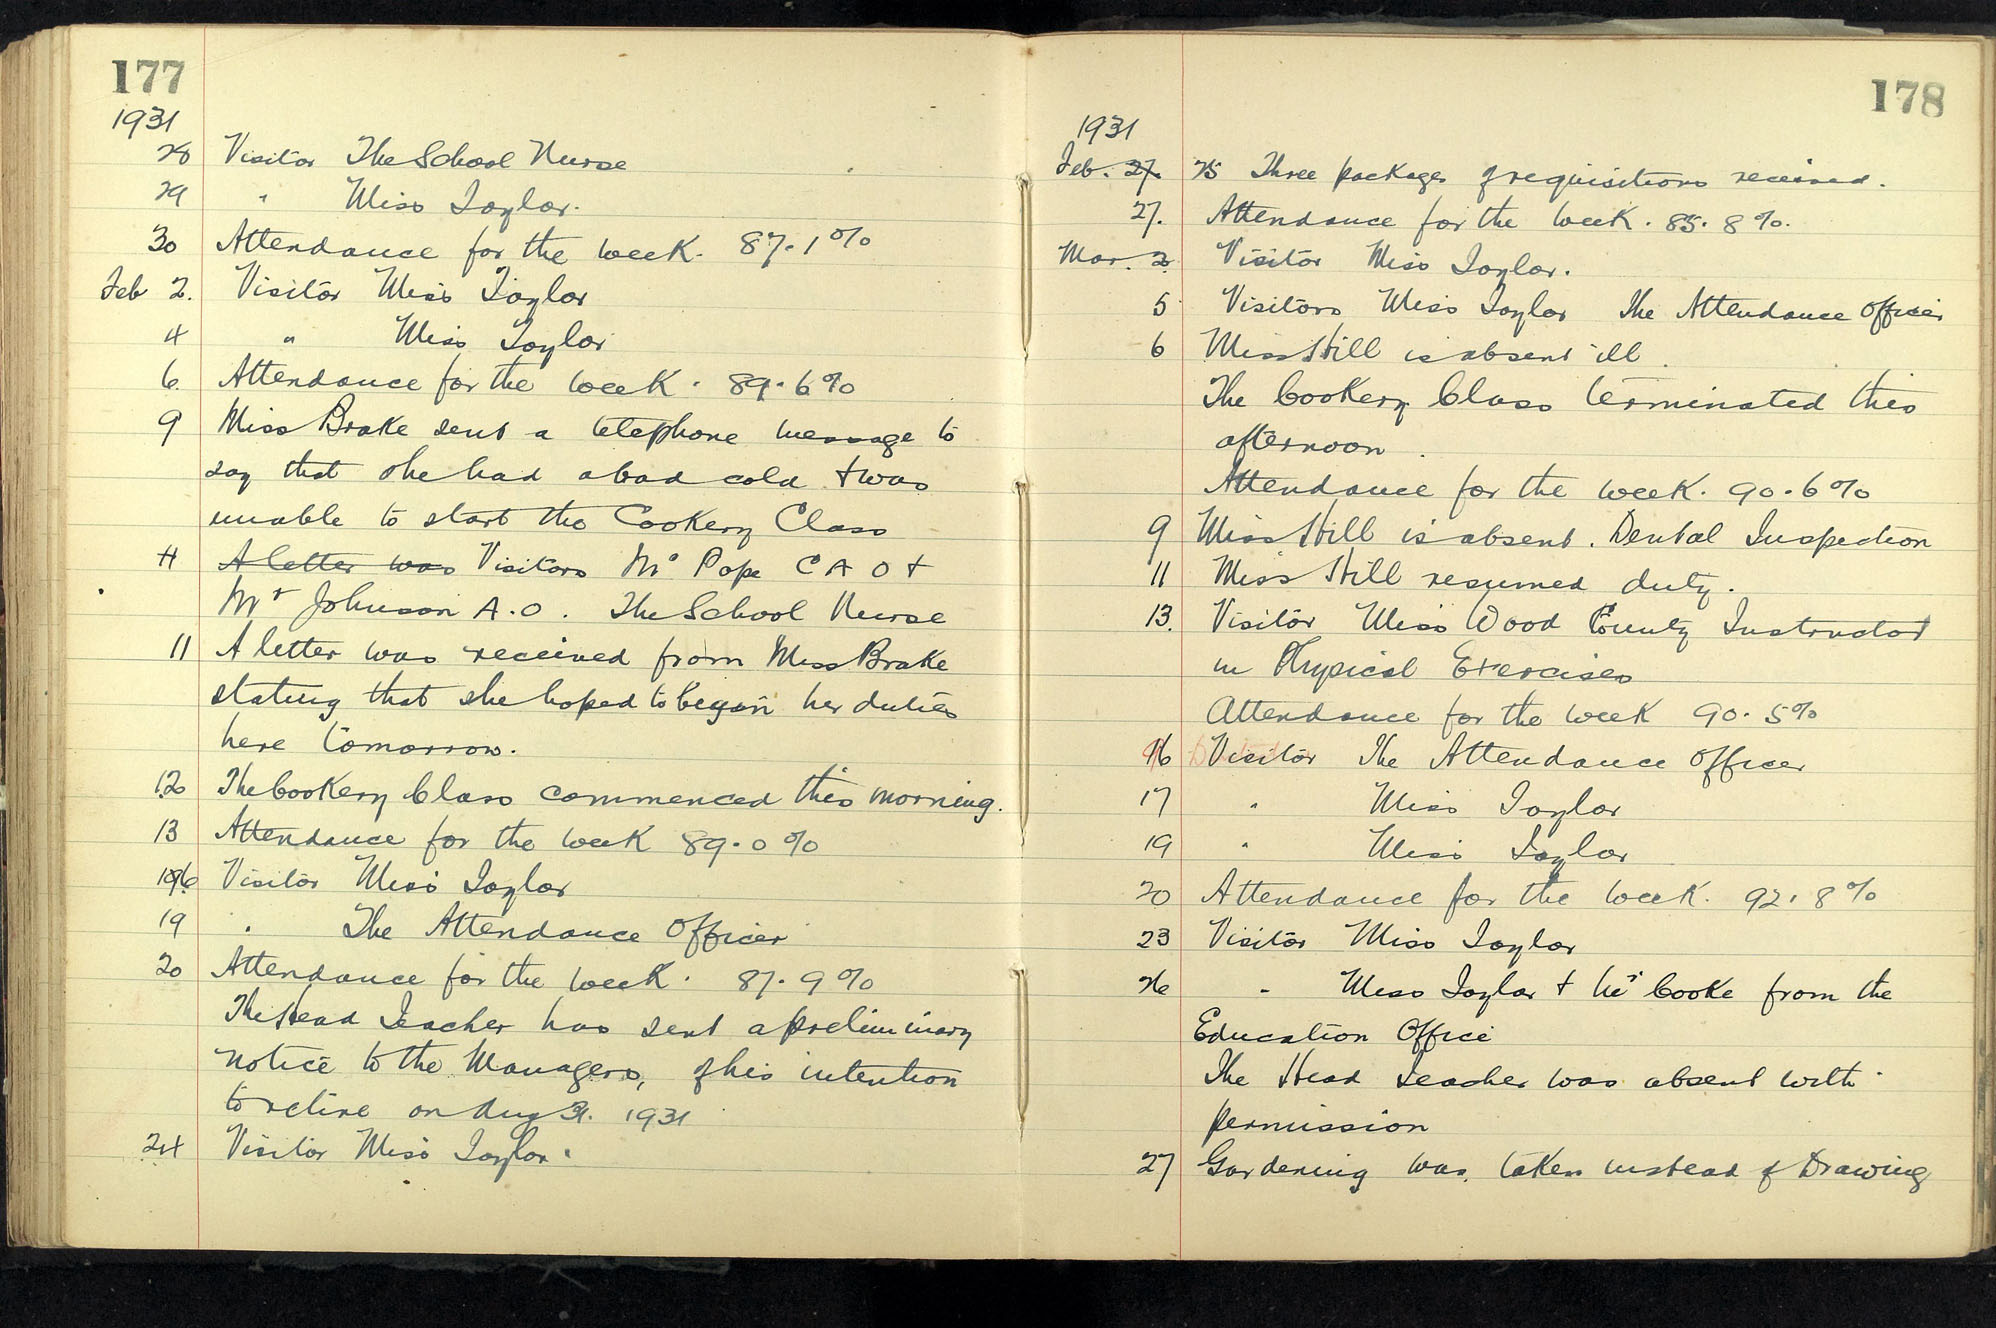 177
1931
28 Visitor The School Nurse
29 " Miss Taylor.
30 Attendance for the week. 87.1%
Feb 2. Visitor Miss Taylor
4 " Miss Taylor
6. Attendance for the week. 89.6%
9 Miss Brake sent a telephone message to
say that she had a bad cold + was
unable to start the Cookery Class
A letter was Visitors Mr Pope C A O +
Mr Johnson A.O. The School Nurse
11 A letter was received from Miss Brake
stating that she hoped to begin her duties
here tomorrow.
12 The Cookery Class commenced this morning.
13 Attendance for the week 89.0%
16 Visitor Miss Taylor
19 " The Attendance Officer
20 Attendance for the week. 87.9%
The Head Teacher has sent a preliminary
notice to the Managers, of his intention
to retire on Aug 31. 1931
24 Visitor Miss Taylor.
178
1931
Feb. 27. 25 Three packages of requisitions received.
27. Attendance for the week. 85.8%.
Mar. 2 Visitor Miss Taylor.
5 Visitors Miss Taylor The Attendance Officer
6 Miss Hill is absent ill
The Cookery Class terminated this
afternoon.
Attendance for the week. 90.6%
9 Miss Hill is absent. Dental Inspection
11 Miss Hill resumed duty.
13. Visitor Miss Wood County Instructor
in Physical Exercises
Attendance for the week 90.5%
16 Visitor The Attendance Officer
17 " Miss Taylor
19 " Miss Taylor
20 Attendance for the week. 92.8%
23 Visitor Miss Taylor
26 " Miss Taylor + Mr Cooke from the
Education Office
The Head Teacher was absent with
permission
27 Gardening was taken instead of Drawing